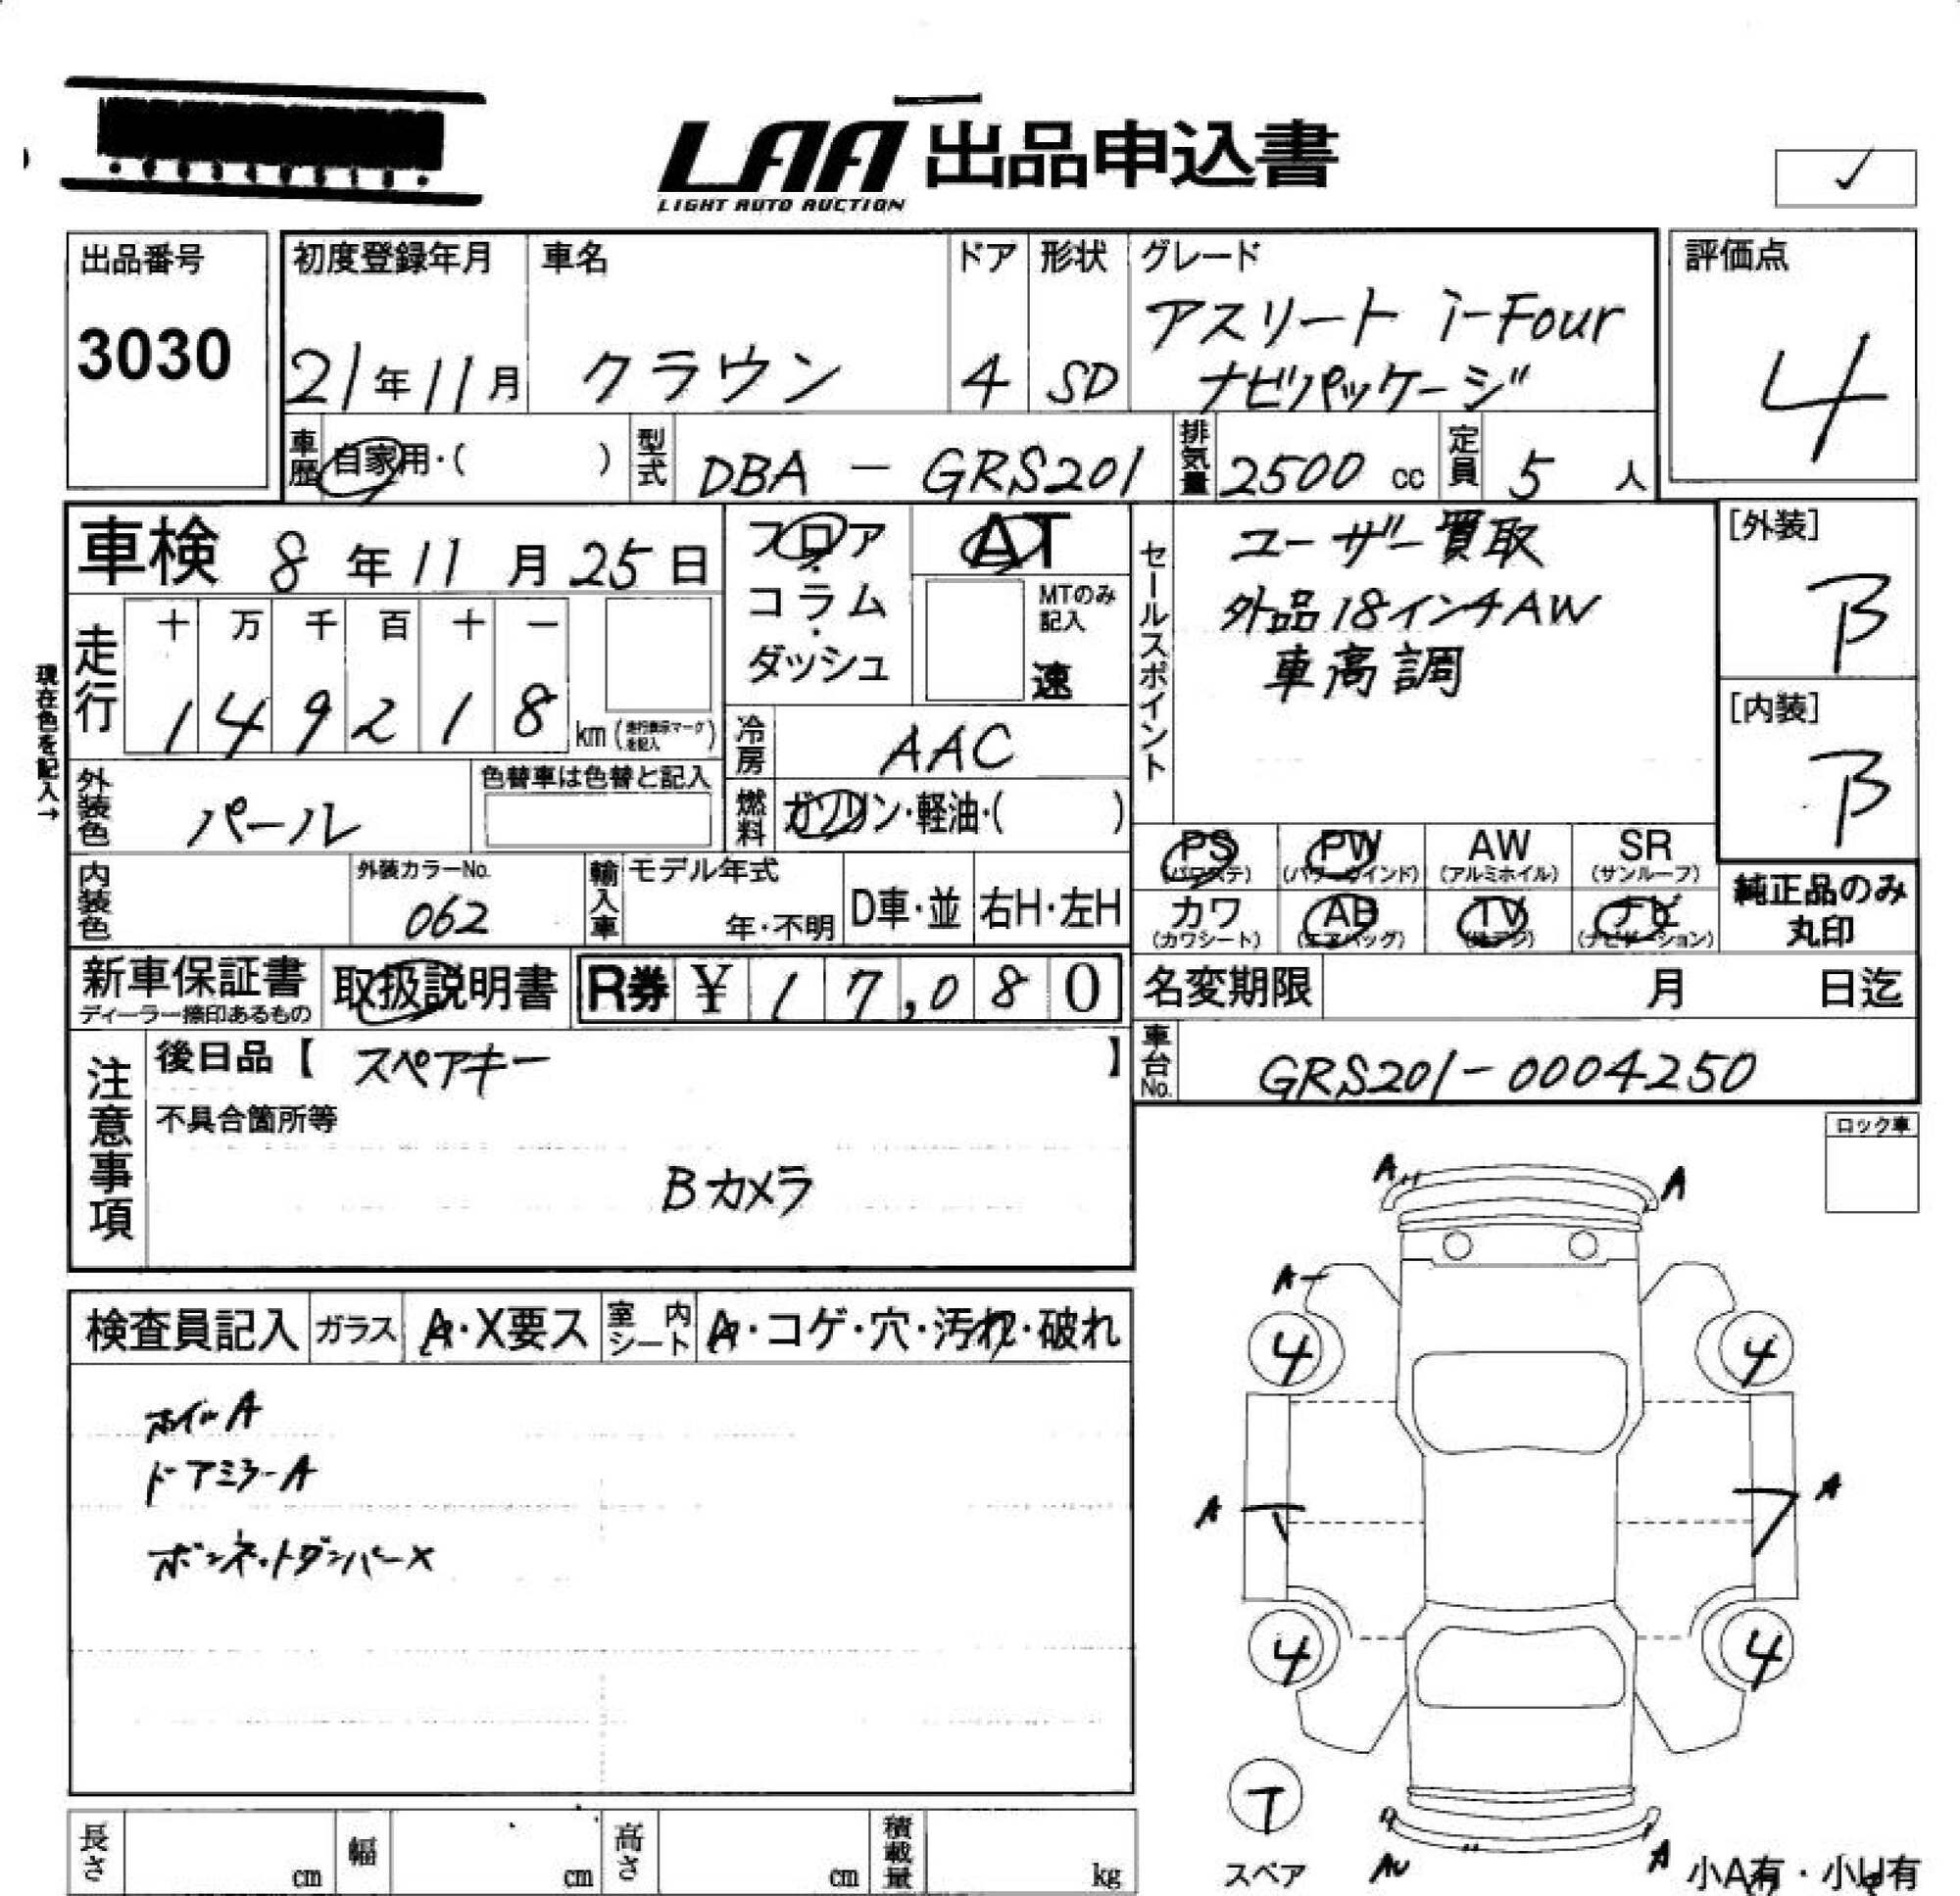 LAA 出品申込書
LIGHT AUTO AUCTION
✓
出品番号
3030
初度登録年月
21年11月
車名
クラウン
ドア
4
形状
SD
グレード
アスリート i-Four
ナビパッケージ
評価点
4
車歴
自家用・( )
型式
DBA - GRS201
排気量
2500 cc
定員
5 人
車検 8年11月25日
フロア
・
コラム
・
ダッシュ
AT
MTのみ
記入
速
セールスポイント
ユーザー買取
外品18インチAW
車高調
[外装]
B
[内装]
B
現在色を記入→
走行
十 万 千 百 十 一
1 4 9 2 1 8
km (走行表示マークを記入)
冷房
AAC
外装色
パール
色替車は色替と記入
燃料
ガソリン・軽油・( )
PS
(パワステ)
PW
(パワーウインド)
AW
(アルミホイル)
SR
(サンルーフ)
カワ
(カワシート)
AB
(エアバッグ)
TV
ナビ
(ナビゲーション)
純正品のみ
丸印
内装色
外装カラーNo.
062
輸入車
モデル年式
年・不明
D車・並
右H・左H
新車保証書
ディーラー捺印あるもの
取扱説明書
R券 ¥ 17,080
名変期限 月 日迄
車台No.
GRS201-0004250
注意事項
後日品【 スペアキー 】
不具合箇所等
Bカメラ
ロック車
検査員記入
ガラス
A・X要ス
室内シート
A・コゲ・穴・汚れ・破れ
ホイルA
ドアミラーA
ボンネットダンパーX
A A
A
4 4
A A
4 4
T
スペア
AU A
小A有・小U有
長さ cm
幅 cm
高さ cm
積載量 kg